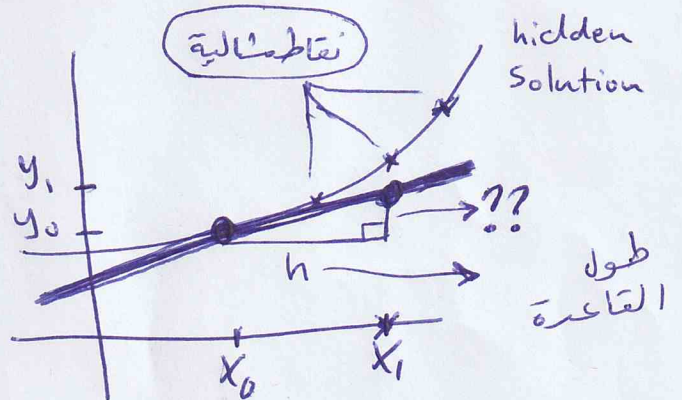 نقاط مثالية
hidden
Solution
y₁
y₀
??
h
طول
القاعدة
x₀
x₁